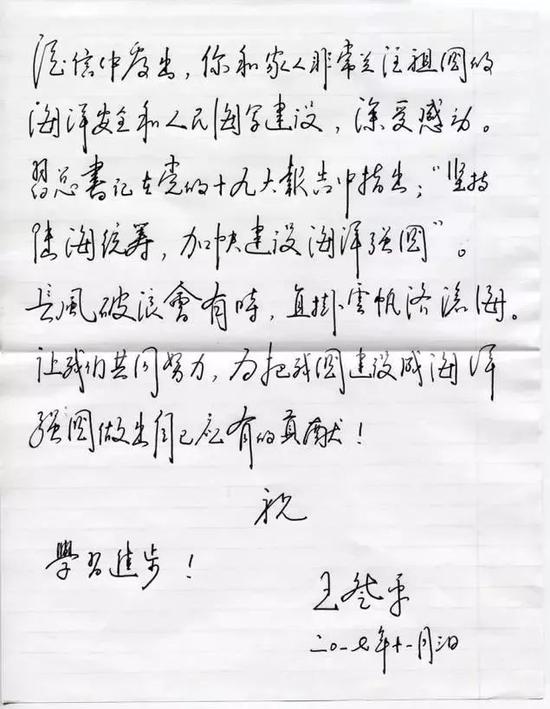 从信中看出，你和家人非常关注祖國的
海洋安全和人民海军建设，深受感动。
習总書记在党的十九大報告中指出："坚持
陆海统筹，加快建设海洋强國"。
长風破浪會有時，直掛雲帆济滄海。
让我们共同努力，为把我國建设成海洋
强國做出自己应有的貢献！
祝
學習进步！
王登平
二〇一七年十一月三日